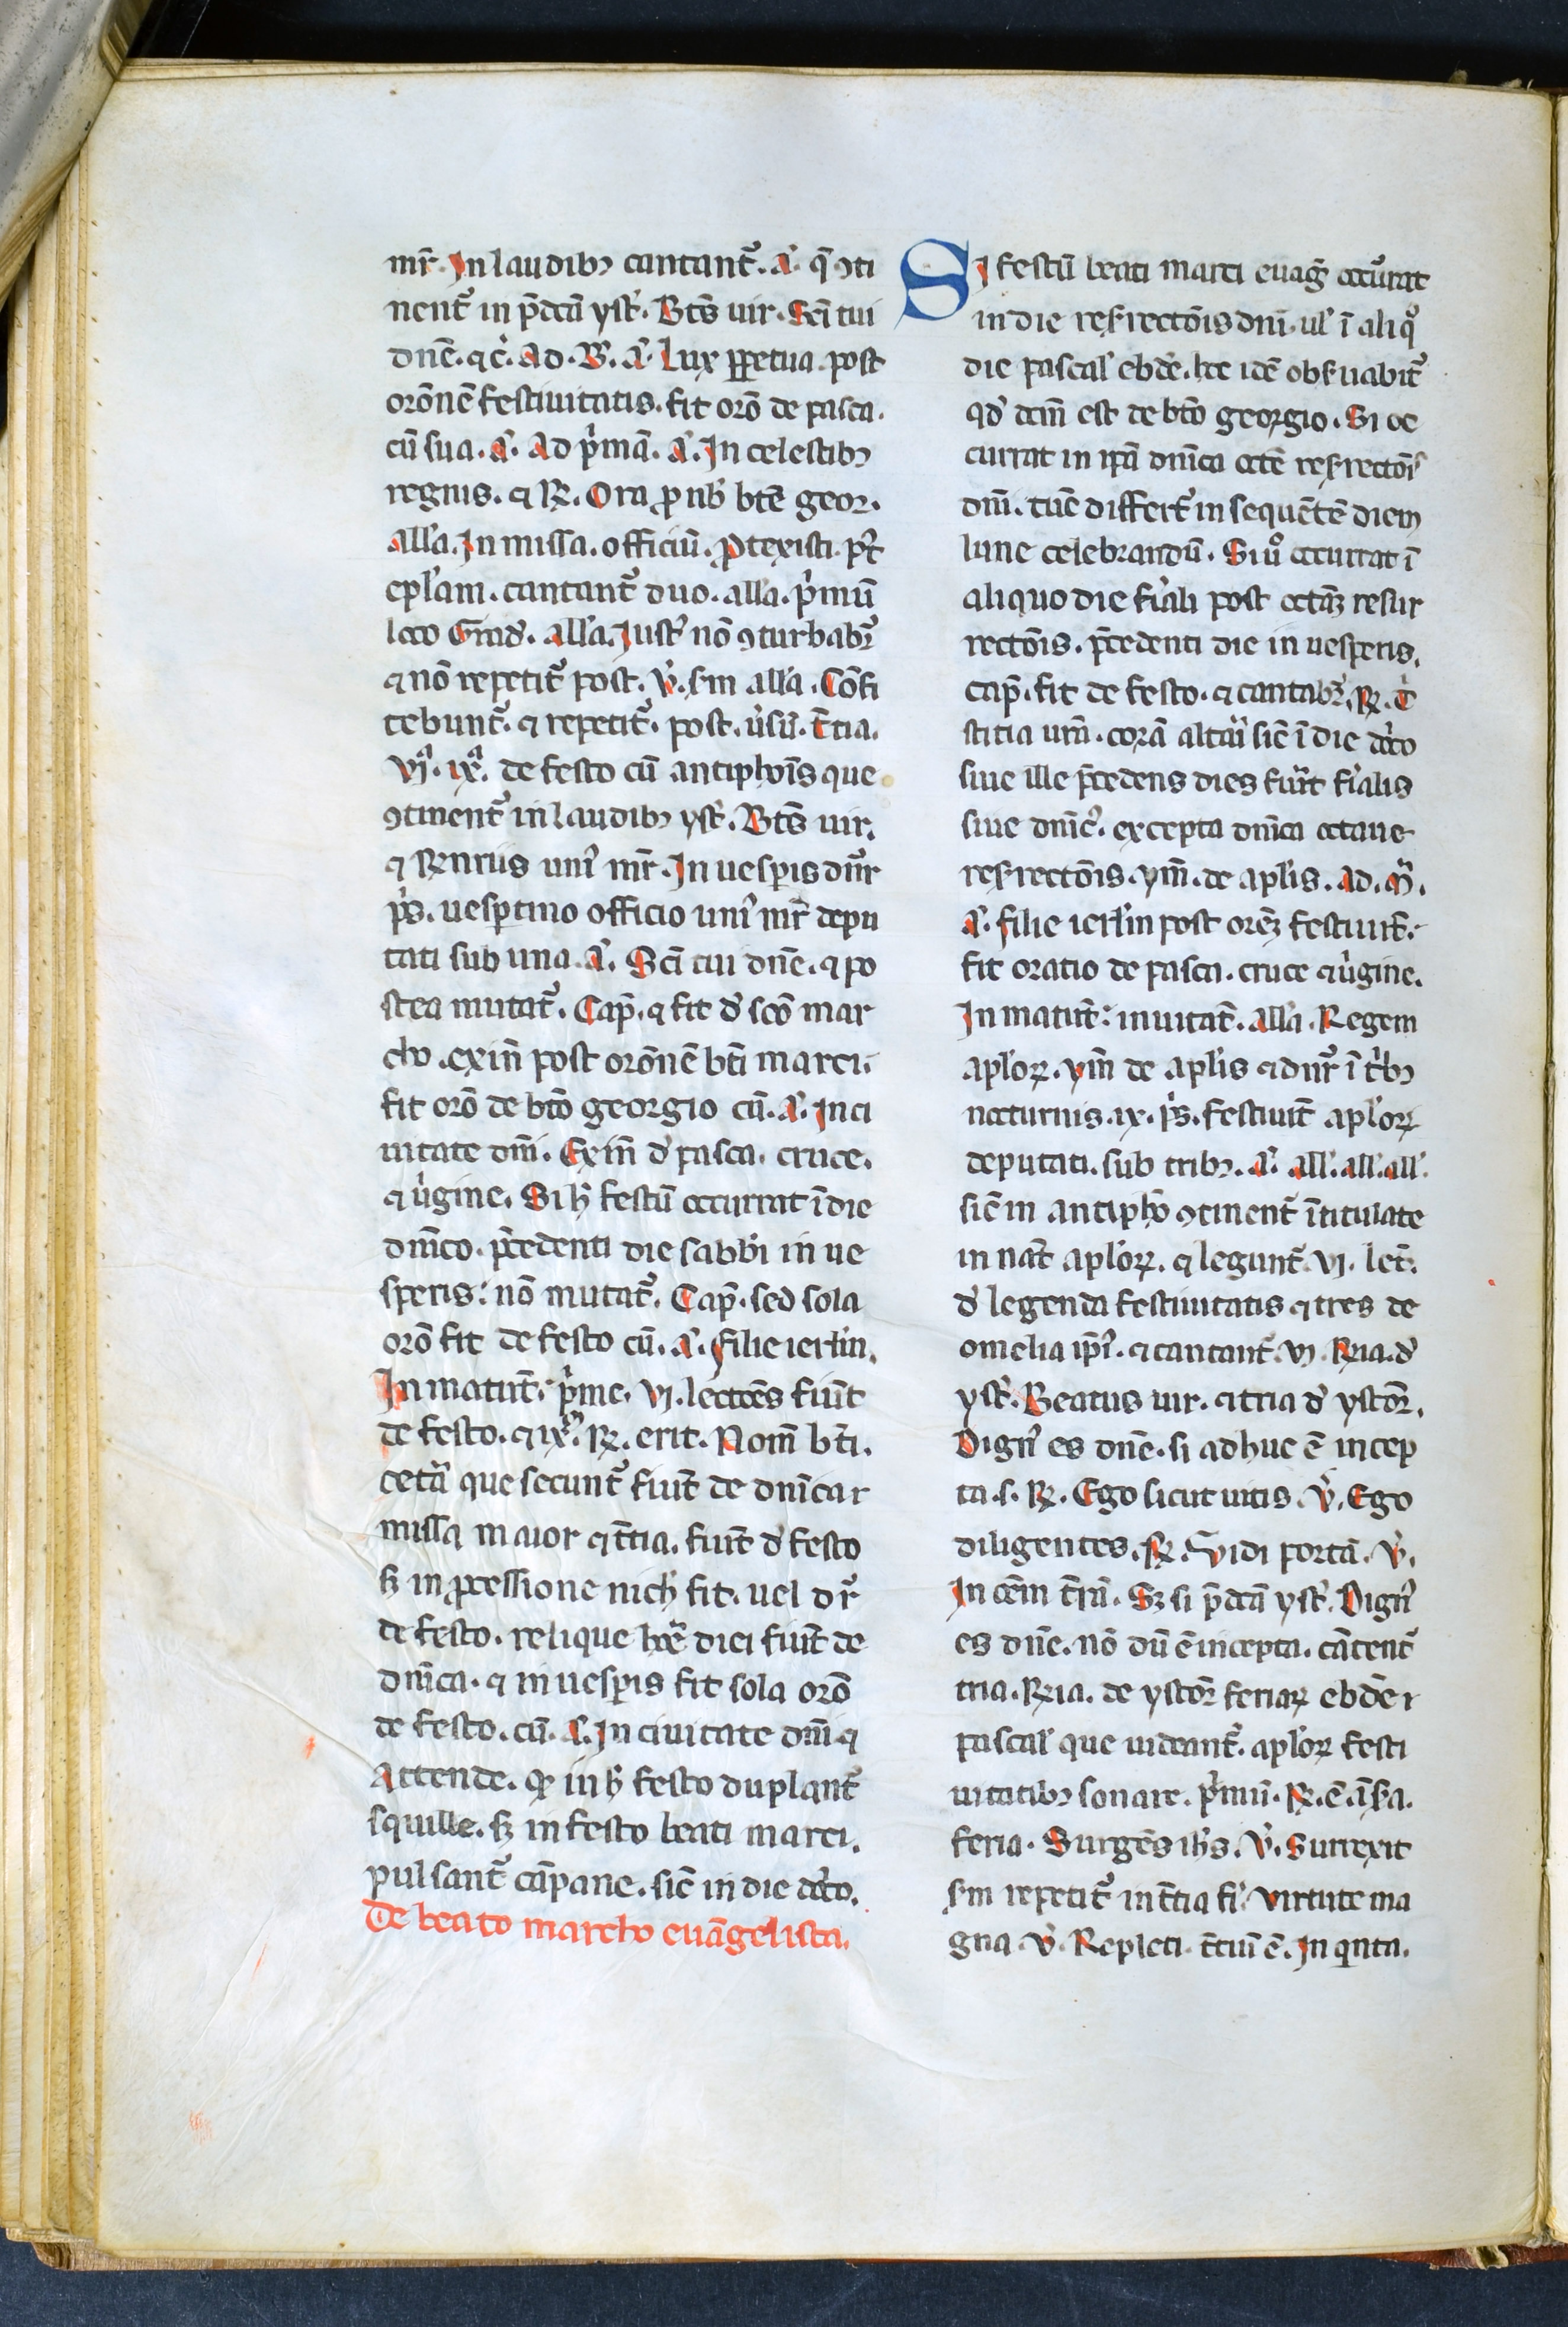 mr̄. In laudibꝫ cantant᷑. a᷑. q̄ ꝯti
nent᷑ in p̄dc̄a yst᷑. Bt̄s uir. Sc̄i tui
dn̄e. ⁊c̄. ad. B᷑. a᷑. Lux ꝑpetua. post
orōnē festiuitatis. fit orō de pasca.
cū sua. a᷑. Ad p̓mā. a᷑. In celestibꝫ
regnis. ⁊ ℟. Ora ꝓ nob̄ bt̄e geor.
all'a. In missa. officiū. Ꝓtexisti. pꝰt
epl'am. cantant᷑ duo. all'a. p̓mū
loco Grad'. all'a. Just᷑ nō ꝯturbab᷑r
⁊ nō repetit᷑ post. ℣. sm̄ all'a. Cōfi
tebunt᷑. ⁊ repetit᷑. post. ũsū. t̄tia.
vj̊. ix̊. de festo cū antiphōis que
ꝯtinent᷑ in laudibꝫ yst᷑. Bt̄s uir.
⁊ ℟nriis uniꝰ mr̄. In uesꝑis dn̄r
ps̄. uesꝑtino officio uniꝰ mr̄ depu
tati sub una. a᷑. Sc̄i tui dn̄e. ⁊ po
stea mutat᷑. Cap̄. ⁊ fit d' sc̄o mar
cho. exin̄ post orōnē bt̄i marci.
fit orō de bt̄o georgio cū. a᷑. In ci
uitate dn̄i. Exin̄ d' pasca. cruce.
⁊ ũgine. Si h̄ festū occurrat ī die
dn̄ico. p̄cedenti die sabb̄i in ue
speris: nō mutat᷑. Cap̄. sed sola
orō fit de festo cū. a᷑. filie ierl'm.
In matut̄. p̓me. vj. lectōes fiunt
de festo. ⁊ ix̄. ℟. erit. Nom̄ bt̄i.
cetã que secunt᷑ fiūt de dn̄ica ɾ
missa maior ⁊ t̄tia. fiūt d' festo
sꝫ in ꝓcessione nich̄ fit. uel dr̄
de festo. relique hoē diei fiūt de
dn̄ica. ⁊ in uesꝑis fit sola orō
de festo. cū. a᷑. In ciuitate dn̄i. ⁊
Attende. ꝙ in h̄ festo duplant᷑
squille. sꝫ in festo beati marci.
pulsant᷑ cāpane. sic̄ in die dc̄o.
De beato marcho euāgelista.
Si festū beati marci euāḡ occũrat
in die resrectōis dn̄i. ul' ī aliqͦ
die pascal' ebdē. hoc idē obsuabit᷑
qd' dcm̄ est de bt̄o georgio. Si oc
currat in ip̄a dn̄ica octē resrectōis
dn̄i. tūc differt᷑ in sequētē diem
lune celebrandū. Si uͦ occurrat ī
aliquo die fiali post octāꝫ resur
rectōis. p̄cedenti die in uesperis.
cap̄. fit de festo. ⁊ cantab᷑r. ℟. T̓
stitia ur̄a. corā altãi sic̄ ī die dc̄o
siue ille p̄cedens dies fũit fialis
siue dn̄ic᷑. excepta dn̄ica octaue
resrectōis. ym̄. de apl'is. ad. m̃.
a᷑. filie ierl'm post orēꝫ festiuit̄.
fit oratio de pasca. cruce ⁊ ũgine.
In matut̄: inuitat̄. all'a. Regem
apl'oꝝ. ym̄ de apl'is ⁊ dn̄r ī tbꝫ
nocturnis. ix. ps̄. festiuit̄ apl'oꝝ
deputati. sub tribꝫ. a᷑. all'. all'. all'.
sic̄ in antiphō ꝯtinent᷑ ītitulate
in nat̄ apl'oꝝ. ⁊ legunt᷑. vj. lc̄t.
d' legenda festiuitatis ⁊ tres de
omelia ip̄iꝰ. ⁊ cantant᷑. vj. ℟ria. d'
yst᷑. Beatus uir. ⁊ tria d' ystor̄.
Dignꝰ es dn̄e. si adhuc ē incep
ta. s. ℟. Ego sicut uitis. ℣. Ego
diligentes. ℟. Vidi portā. ℣.
In oēm t̄rā. Sꝫ si p̄dc̄a yst᷑. Dignꝰ
es dn̄e. nō dū ē incepta. cātent᷑
tria. ℟ria. de ystor̄ feriaꝝ ebdē ɾ
pascal' que uideant᷑. apl'oꝝ festi
uitatibꝫ sonare. p̓mū. ℟. ē. ī sc̄a.
feria. Surgēs ih̄s. ℣. Surrexit
sm̄ repetit᷑ in t̄tia fi᷑. Virtute ma
gna. ℣. Repleti. t̄ciū ē. In q̓nta.